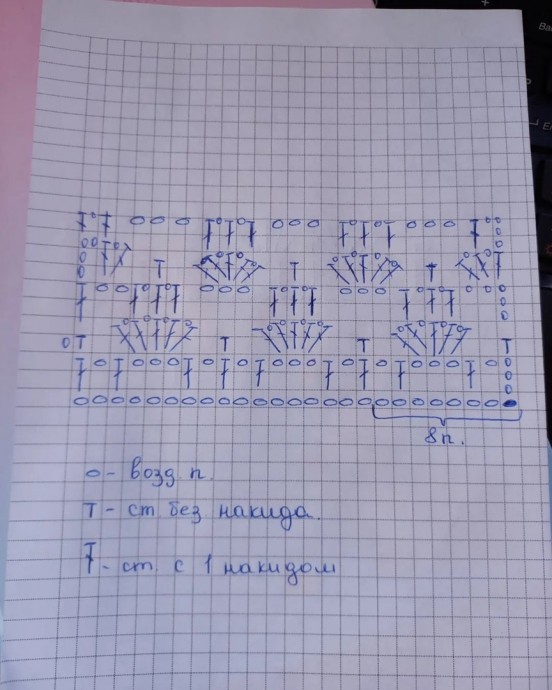 8п.
o - возд п.
T - ст без накида.
Ŧ - ст. с 1 накидом